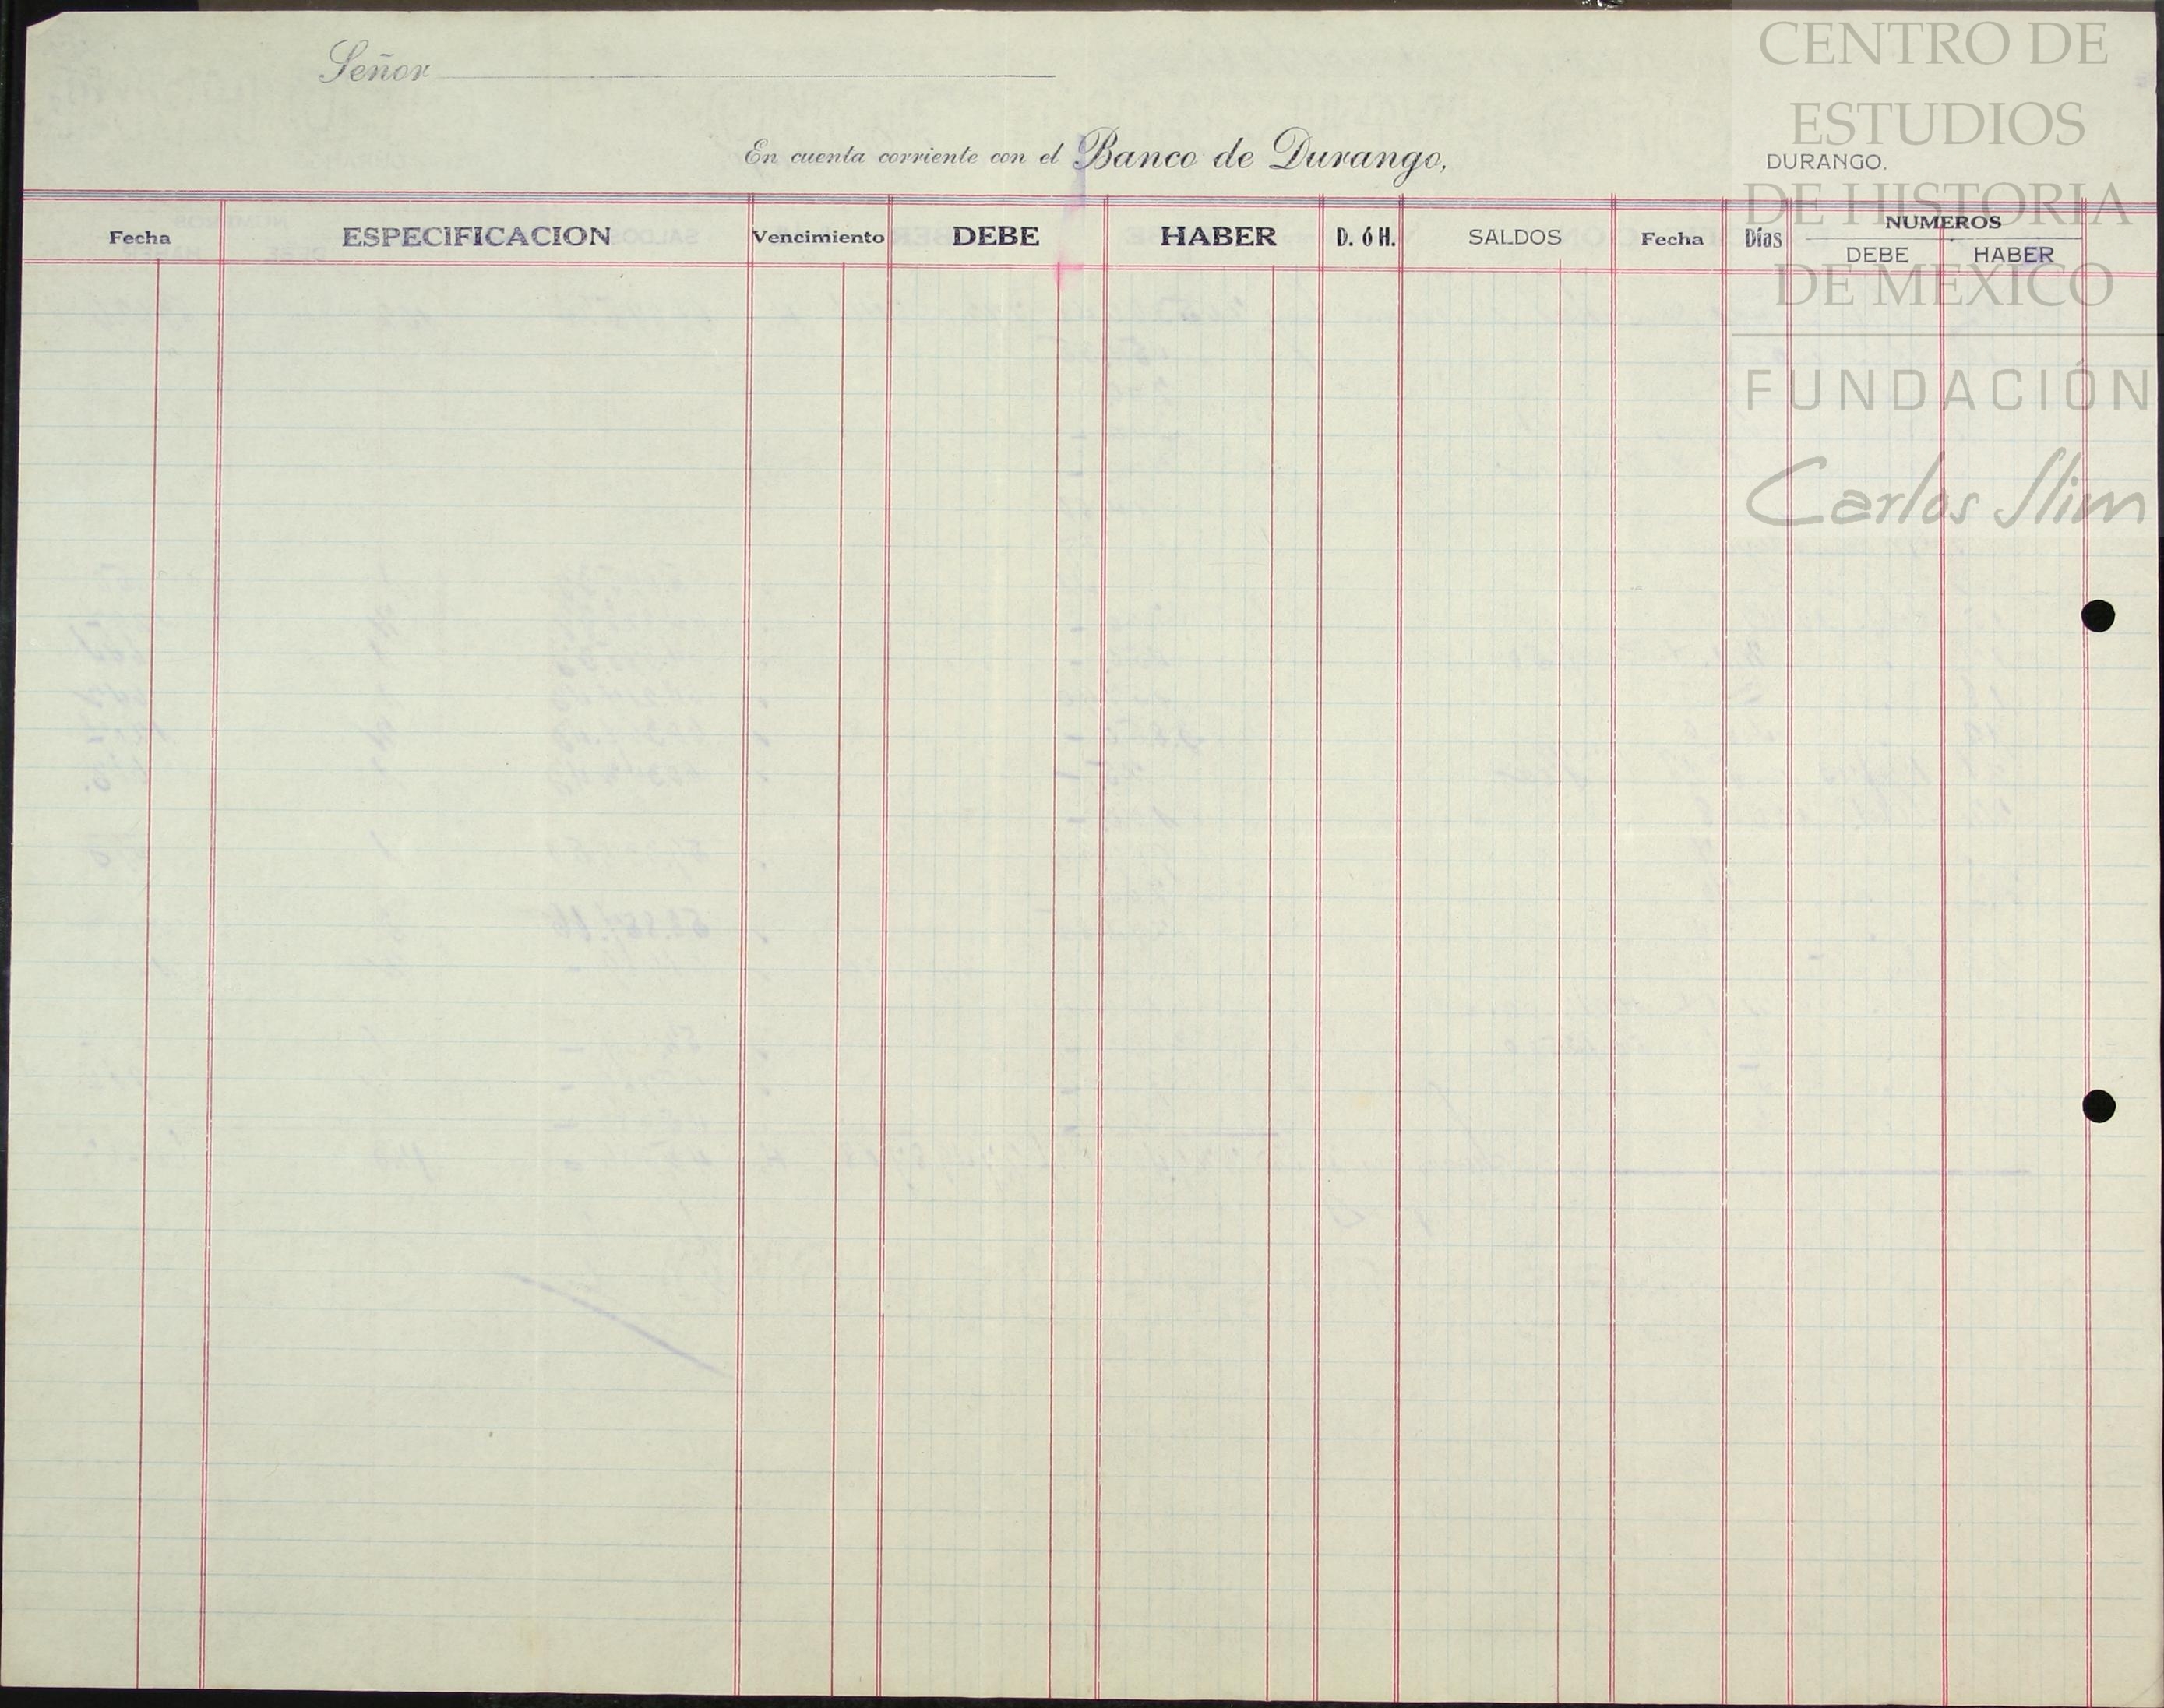 Señor
En cuenta corriente con el Banco de Durango,
DURANGO.
Fecha ESPECIFICACION Vencimiento DEBE HABER D. ó H. SALDOS Fecha Días NUMEROS
DEBE HABER
CENTRO DE
ESTUDIOS
DE HISTORIA
DE MEXICO
FUNDACIÓN
Carlos Slim